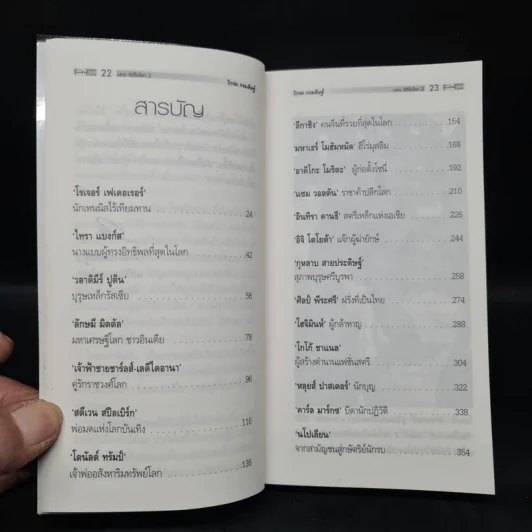 22
วิกรม กรมดิษฐ์
สารบัญ
'โรเจอร์ เฟเดอเรอร์'
นักเทนนิสไร้เทียมทาน 24
'ไทรา แบงก์ส'
นางแบบผู้ทรงอิทธิพลที่สุดในโลก 42
'วลาดิมีร์ ปูติน'
บุรุษเหล็กรัสเซีย 56
'ลักษมี มิตตัล'
มหาเศรษฐีโลก ชาวอินเดีย 78
'เจ้าฟ้าชายชาร์ลส์-เลดี้ไดอานา'
คู่รักราชวงศ์โลก 96
'สตีเวน สปีลเบิร์ก'
พ่อมดแห่งโลกบันเทิง 116
'โดนัลด์ ทรัมป์'
เจ้าพ่ออสังหาริมทรัพย์โลก 136
วิกรม กรมดิษฐ์
23
'ลีกาชิง' คนจีนที่รวยที่สุดในโลก 154
'มหาเธร์ โมฮัมหมัด' ฮีโร่มุสลิม 168
'อาคิโกะ โมริตะ' ผู้ก่อตั้งโซนี่ 192
'แซม วอลตัน' ราชาค้าปลีกโลก 210
'อินทิรา คานธี' สตรีเหล็กแห่งเอเชีย 226
'อิจิ โตโยต้า' แจ๊กผู้ฆ่ายักษ์ 244
'กุหลาบ สายประดิษฐ์'
สุภาพบุรุษศรีบูรพา 258
'ศิลป์ พีระศรี' ฝรั่งที่เป็นไทย 274
'โฮจิมินห์' ผู้กล้าหาญ 288
'โกโก้ ชาแนล'
ผู้สร้างตำนานแฟชั่นสตรี 304
'หลุยส์ ปาสเตอร์' นักบุญ 322
'คาร์ล มาร์กซ' บิดานักปฏิวัติ 338
'นโปเลียน'
จากสามัญชนสู่กษัตริย์นักรบ 354